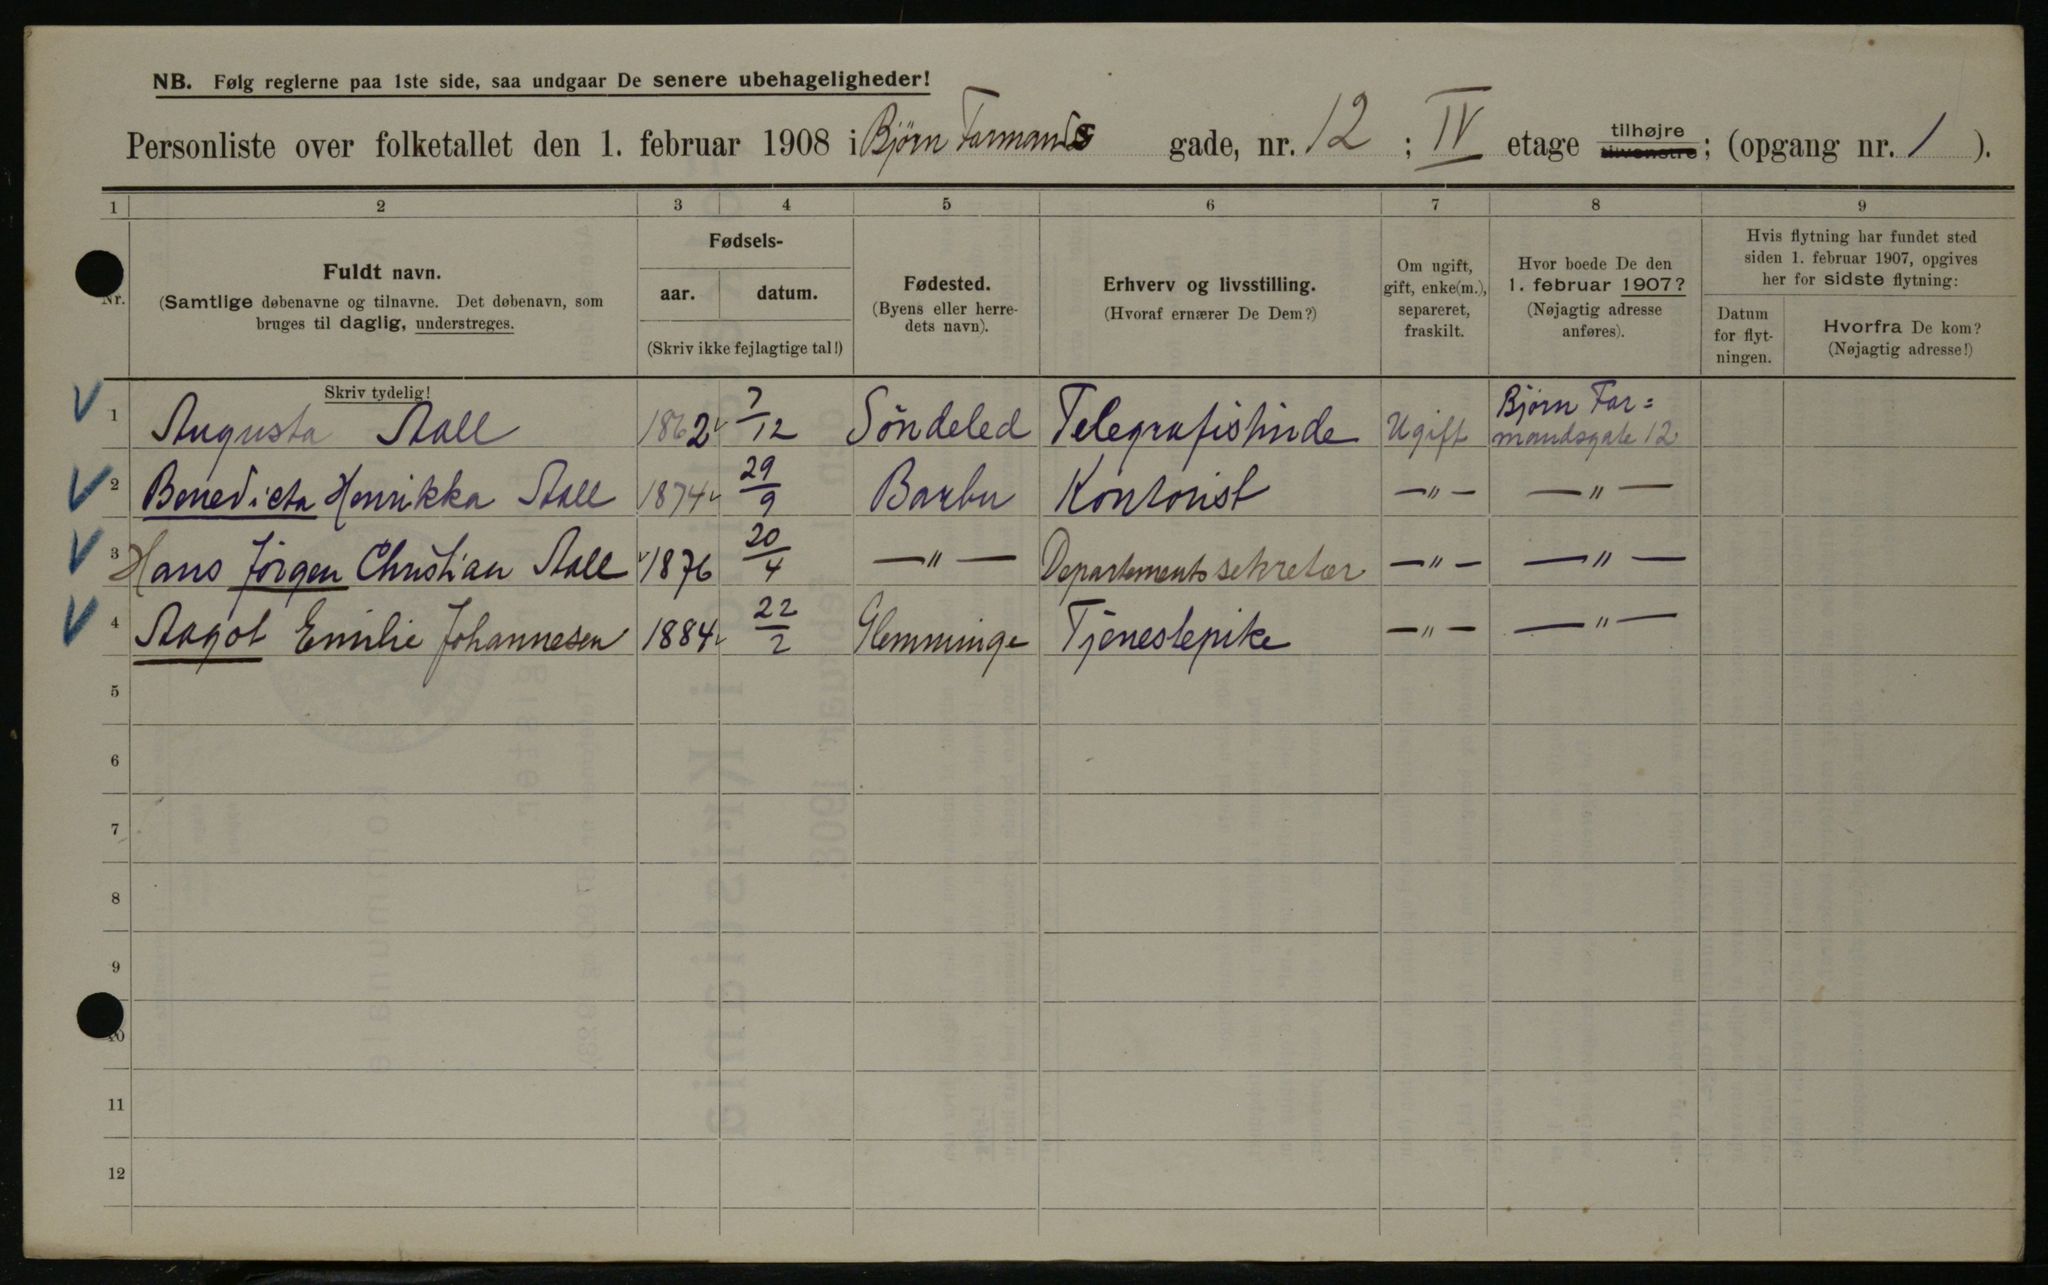 NB. Følg reglerne paa 1ste side, saa undgaar De senere ubehageligheder!
Personliste over folketallet den 1. februar 1908 i Bjørn Farmands gade, nr. 12 ; IV etage tilhøjre tilvenstre; (opgang nr. 1 ).
1 2 3 4 5 6 7 8 9
Nr.
Fuldt navn.
(Samtlige døbenavne og tilnavne. Det døbenavn, som
bruges til daglig, understreges.
Skriv tydelig!
Fødsels-
aar. datum.
(Skriv ikke fejlagtige tal!)
Fødested.
(Byens eller herre-
dets navn).
Erhverv og livsstilling.
(Hvoraf ernærer De Dem?)
Om ugift,
gift, enke(m.),
separeret,
fraskilt.
Hvor boede De den
1. februar 1907?
(Nøjagtig adresse
anføres).
Hvis flytning har fundet sted
siden 1. februar 1907, opgives
her for sidste flytning:
Datum
for flyt-
ningen.
Hvorfra De kom?
(Nøjagtig adresse!)
1 Augusta Aall 1862 7/12 Söndeled Telegrafistinde Ugift Bjørn Far=
mandsgate 12
2 Benedicta Henrikka Aall 1874 29/9 Barbu Kontorist —"— —"—
3 Hans Jörgen Christian Aall 1876 20/4 —"— Departementssekretær —"— —"—
4 Aagot Emilie Johannesen 1884 22/2 Glemminge Tjenestepike —"— —"—
5
6
7
8
9
10
11
12